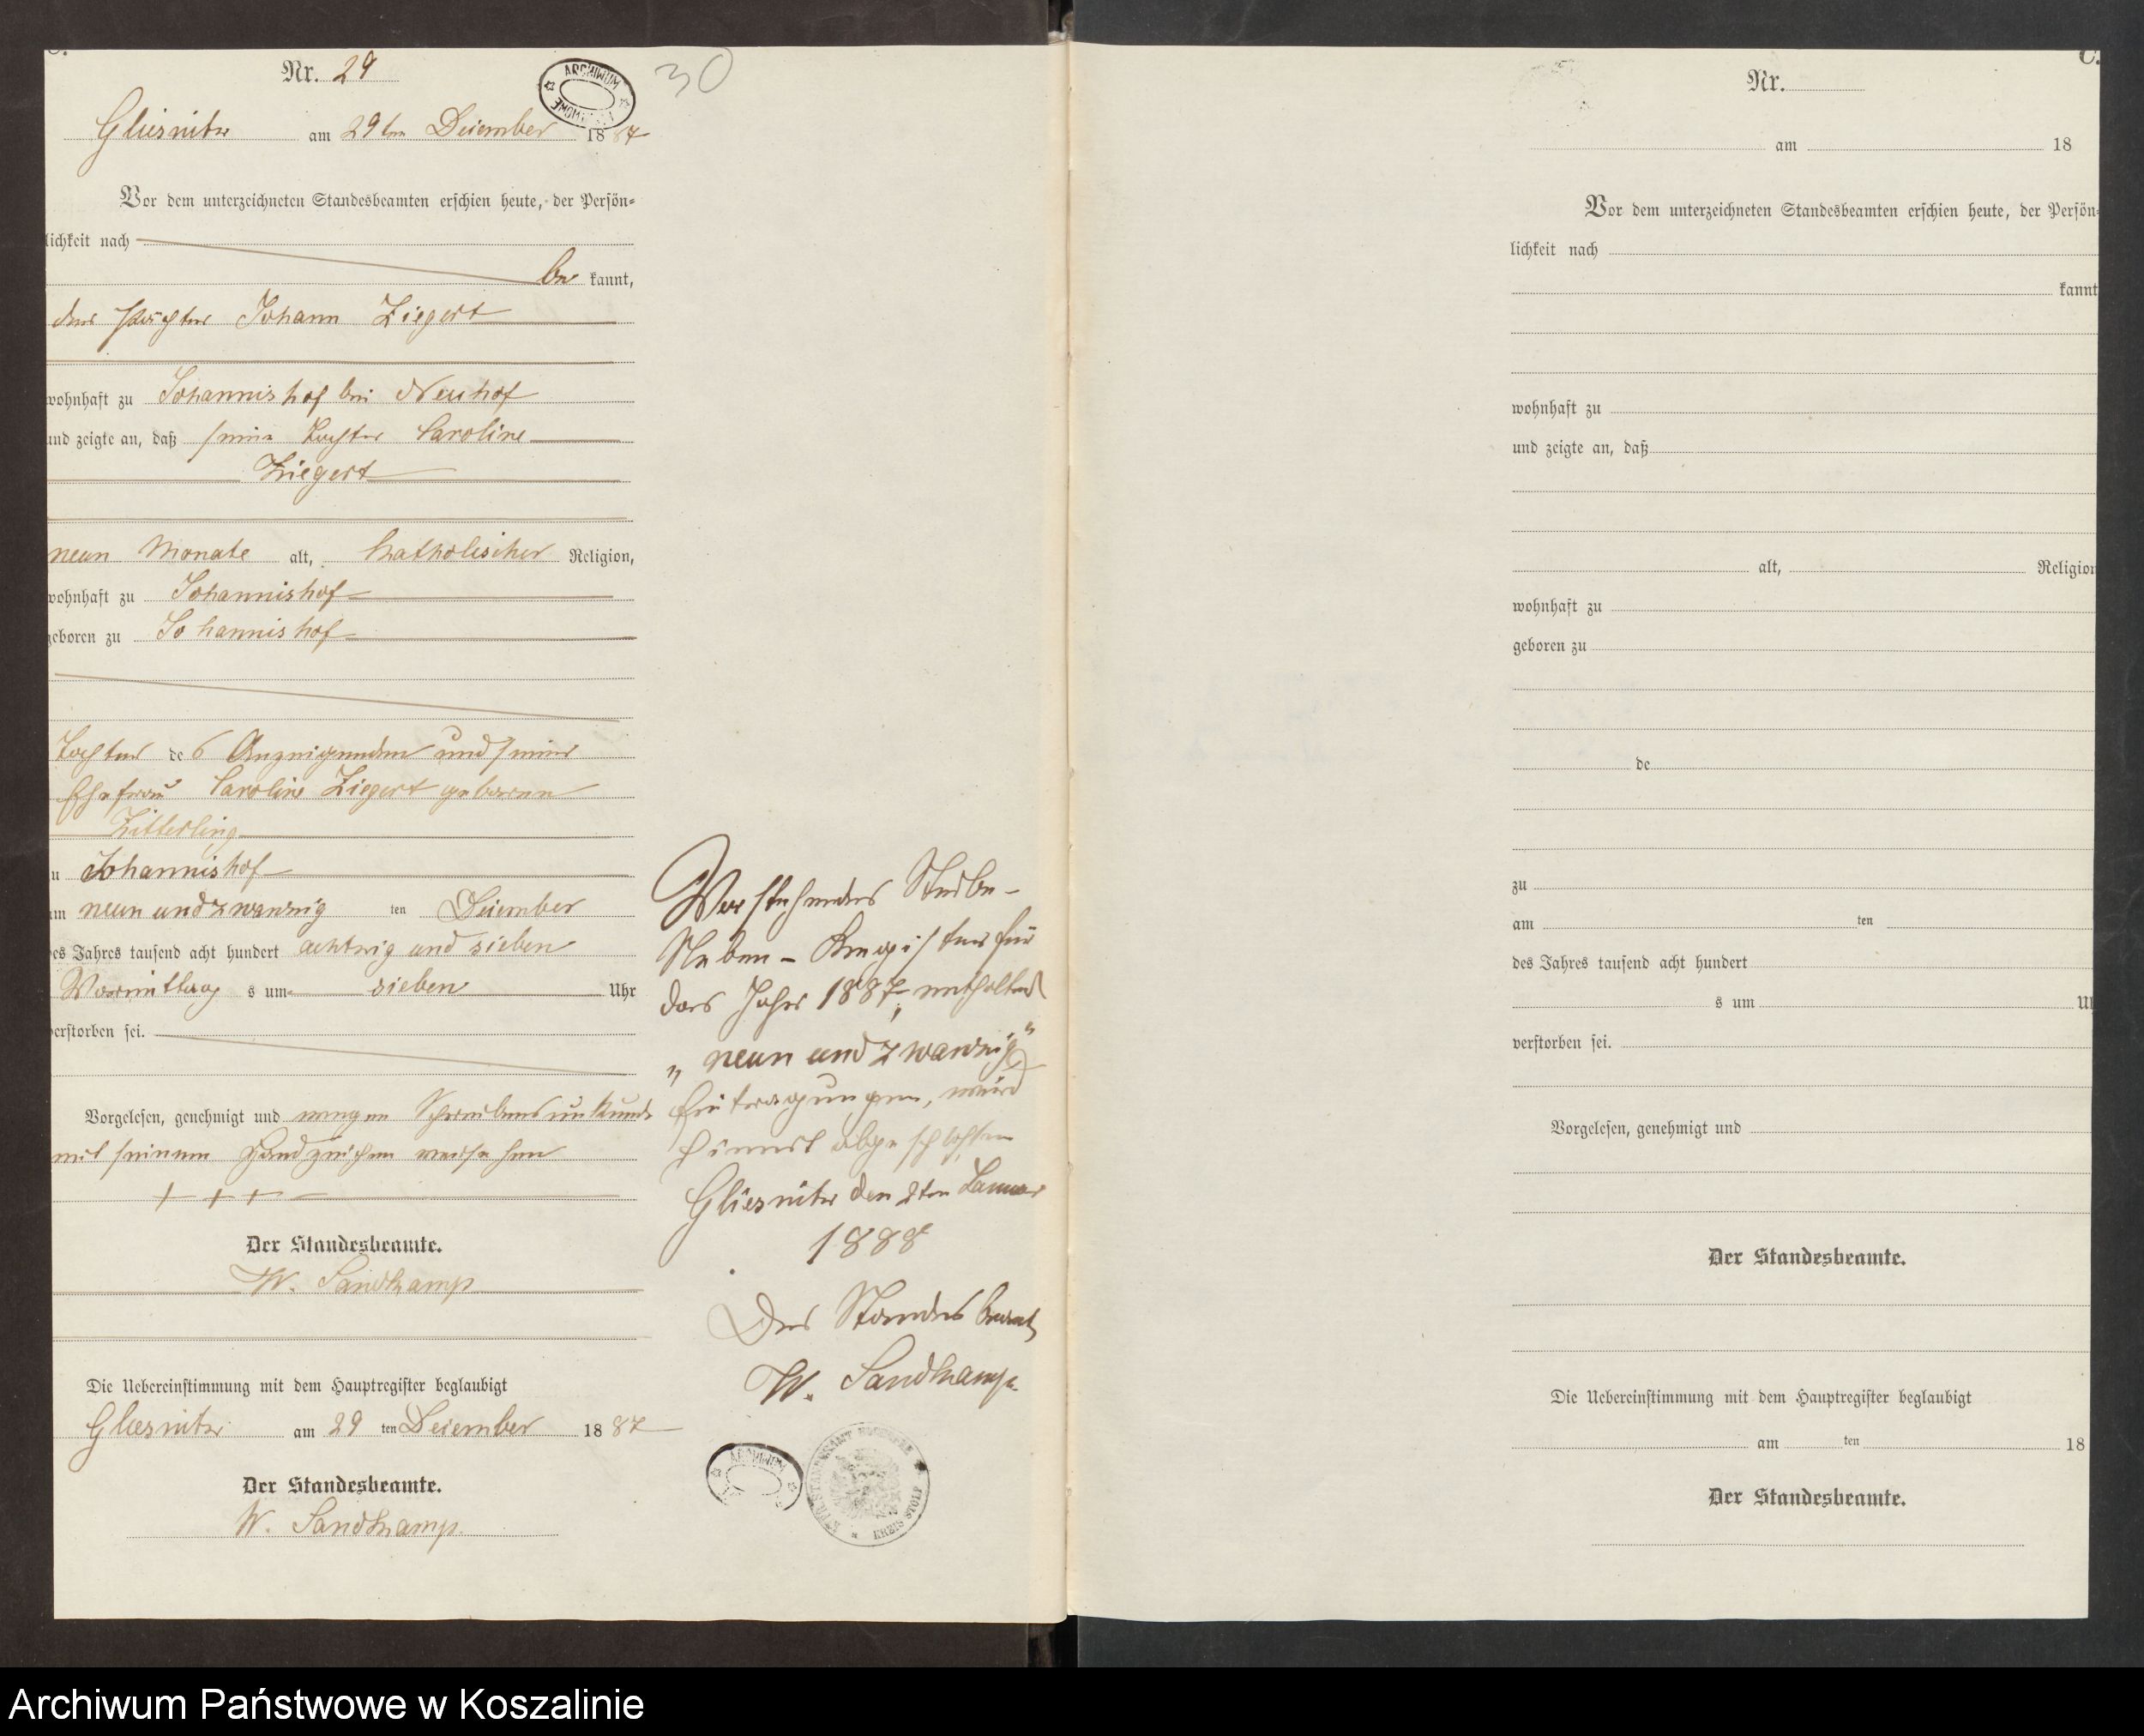 C.
Nr. 29
30
ARCHIWUM
Gliesnitz am 29ten Dezember 1887
Vor dem unterzeichneten Standesbeamten erschien heute, der Persön-
lichkeit nach
be kannt,
der Pächter Johann Ziegert
wohnhaft zu Johannishof bei Neuhof
und zeigte an, daß seine Tochter Caroline
Ziegert
neun Monate alt, katholischer Religion,
wohnhaft zu Johannishof
geboren zu Johannishof
Tochter des Anzeigenden und seiner
Ehefrau Caroline Ziegert geborene
Zitterling
zu Johannishof
am neun und zwanzig ten Dezember
des Jahres tausend acht hundert achtzig und sieben
Vormittag s um sieben Uhr
verstorben sei.
Vorgelesen, genehmigt und wegen Schreibensunkunde
mit seinem Handzeichen versehen
+ + +
Der Standesbeamte.
W. Sandkamp
Die Uebereinstimmung mit dem Hauptregister beglaubigt
Gliesnitz am 29 ten Dezember 1887
Der Standesbeamte.
W. Sandkamp
Vorstehendes Sterbe-
Neben-Register für
das Jahr 1887, enthaltend
„neun und zwanzig"
Eintragungen, wird
hiermit abgeschlossen
Gliesnitz den 2ten Januar
1888
Der Standesbeamte
W. Sandkamp
ARCHIWUM
KREIS STOLP
C.
Nr.
am 18
Vor dem unterzeichneten Standesbeamten erschien heute, der Persön-
lichkeit nach
kannt
wohnhaft zu
und zeigte an, daß
alt, Religion
wohnhaft zu
geboren zu
de
zu
am ten
des Jahres tausend acht hundert
s um U
verstorben sei.
Vorgelesen, genehmigt und
Der Standesbeamte.
Die Uebereinstimmung mit dem Hauptregister beglaubigt
am ten 18
Der Standesbeamte.
Archiwum Państwowe w Koszalinie